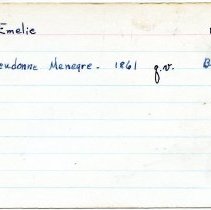 Emelie
eudonne Menegre - 1861 q.v. B